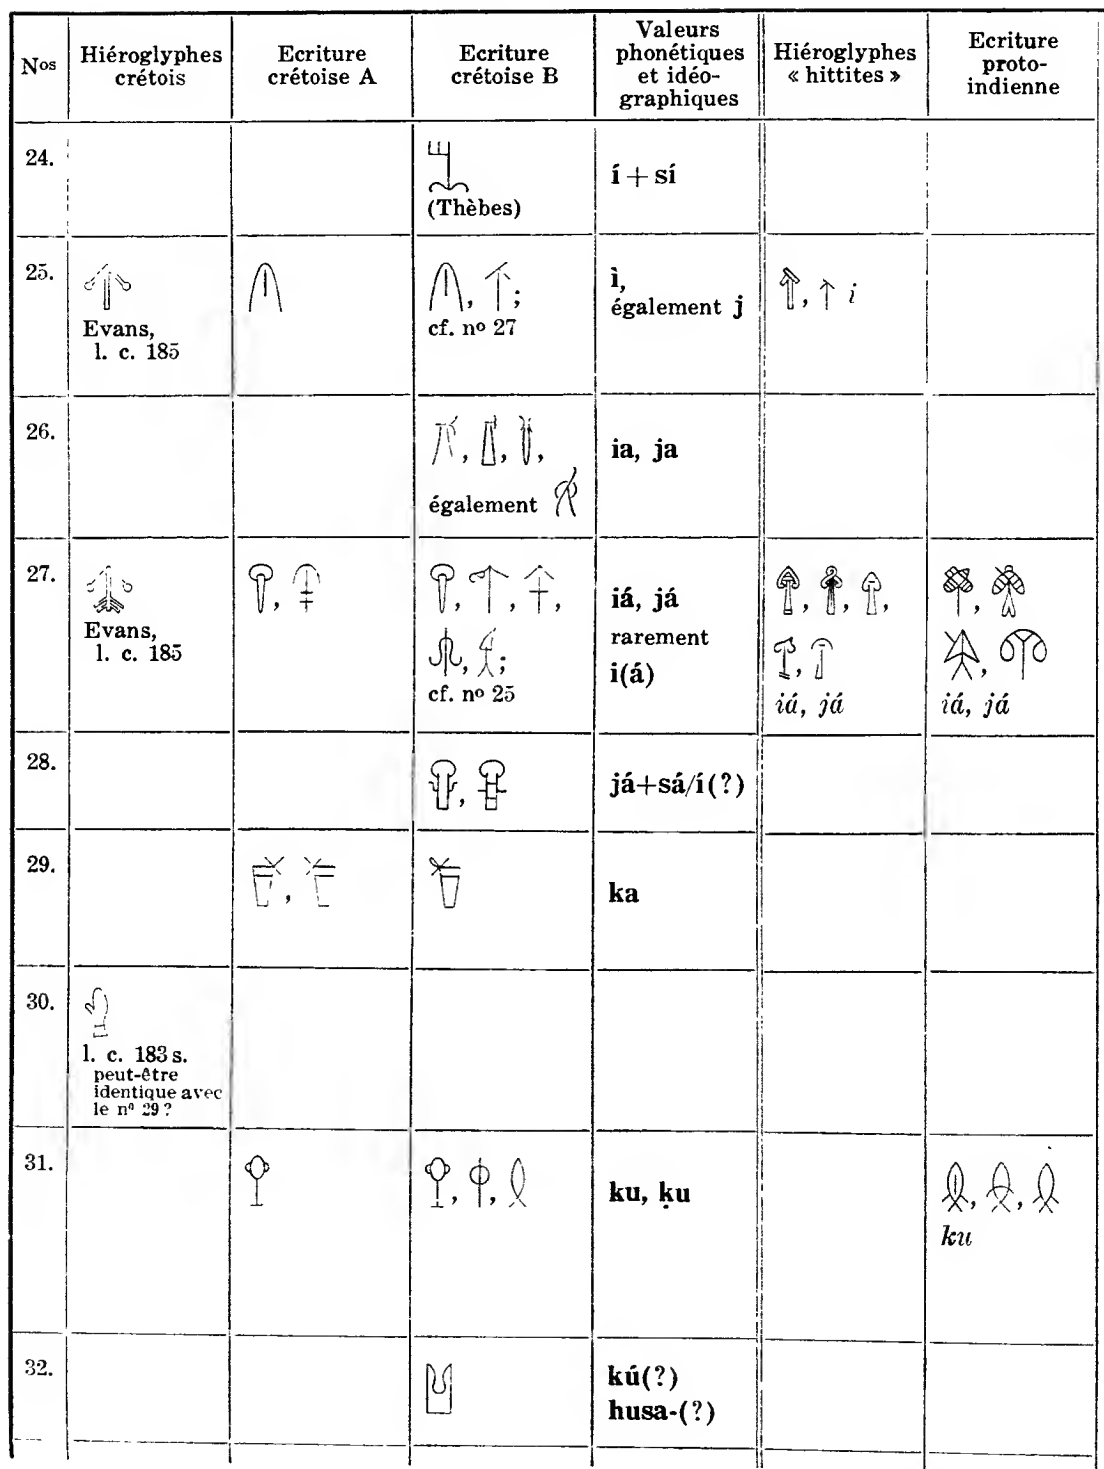 Nos
Hiéroglyphes
crétois
Ecriture
crétoise A
Ecriture
crétoise B
Valeurs
phonétiques
et idéo-
graphiques
Hiéroglyphes
« hittites »
Ecriture
proto-
indienne
24.
(Thèbes)
í + sí
25.
Evans,
l. c. 185
, ;
cf. nº 27
ì,
également j
, i
26.
, , ,
également
ia, ja
27.
Evans,
l. c. 185
,
, , ,
, ;
cf. nº 25
iá, já
rarement
i(á)
, , ,
,
iá, já
,
,
iá, já
28.
,
já+sá/í(?)
29.
,
ka
30.
l. c. 183 s.
peut-être
identique avec
le nº 29 ?
31.
, ,
ku, ḳu
, ,
ku
32.
kú(?)
husa-(?)